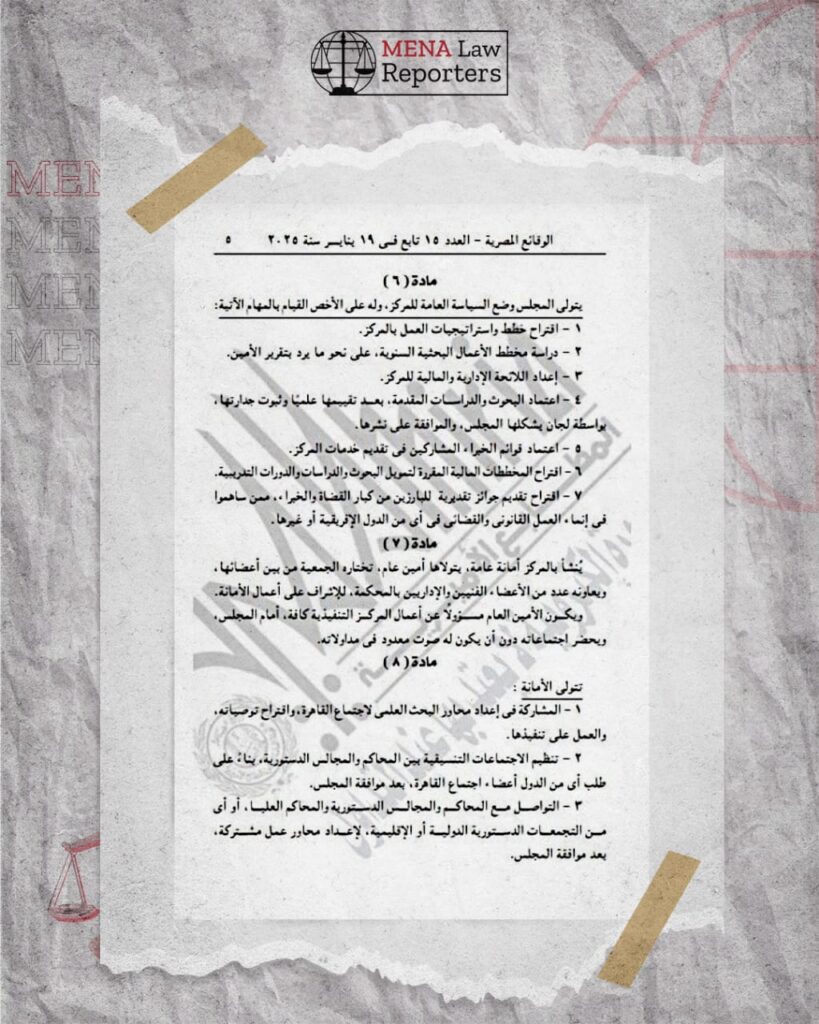 MENA Law
Reporters
MEN
MEN
MEN
MEN
الوقائع المصرية – العدد ١٥ تابع فى ١٩ يناير سنة ٢٠٢٥ ٥
مادة (٦)
يتولى المجلس وضع السياسة العامة للمركز، وله على الأخص القيام بالمهام الآتية:
١ – اقتراح خطط واستراتيجيات العمل بالمركز.
٢ – دراسة مخطط الأعمال البحثية السنوية، على نحو ما يرد بتقرير الأمين.
٣ – إعداد اللائحة الإدارية والمالية للمركز.
٤ – اعتماد البحوث والدراسات المقدمة، بعد تقييمها علميًا وثبوت جدارتها،
بواسطة لجان يشكلها المجلس، والموافقة على نشرها.
٥ – اعتماد قوائم الخبراء المشاركين فى تقديم خدمات المركز.
٦ – اقتراح المخططات المالية المقررة لتمويل البحوث والدراسات والدورات التدريبية.
٧ – اقتراح تقديم جوائز تقديرية للبارزين من كبار القضاة والخبراء، ممن ساهموا
فى إنماء العمل القانونى والقضائى فى أى من الدول الإفريقية أو غيرها.
مادة (٧)
يُنشأ بالمركز أمانة عامة، يتولاها أمين عام، تختاره الجمعية من بين أعضائها،
ويعاونه عدد من الأعضاء الفنيين والإداريين بالمحكمة، للإشراف على أعمال الأمانة.
ويكون الأمين العام مسؤولاً عن أعمال المركز التنفيذية كافة، أمام المجلس،
ويحضر اجتماعاته دون أن يكون له صوت معدود فى مداولاته.
مادة (٨)
تتولى الأمانة :
١ – المشاركة فى إعداد محاور البحث العلمى لاجتماع القاهرة، واقتراح توصياته،
والعمل على تنفيذها.
٢ – تنظيم الاجتماعات التنسيقية بين المحاكم والمجالس الدستورية، بناءً على
طلب أى من الدول أعضاء اجتماع القاهرة، بعد موافقة المجلس.
٣ – التواصل مع المحاكم والمجالس الدستورية والمحاكم العليا، أو أى
من التجمعات الدستورية الدولية أو الإقليمية، لإعداد محاور عمل مشتركة،
بعد موافقة المجلس.